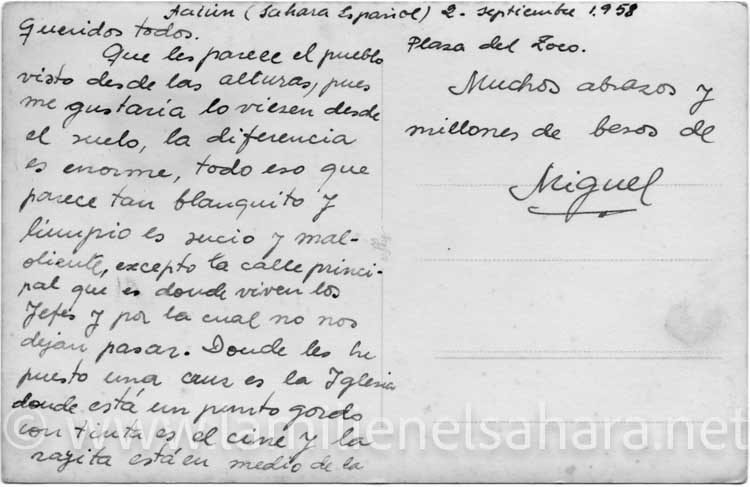 Aaiún (Sahara Español) 2. septiembre 1.958
Queridos todos.
Que les parece el pueblo
visto desde las alturas, pues
me gustaría lo viesen desde
el suelo, la diferencia
es enorme, todo eso que
parece tan blanquito y
limpio es sucio y mal-
oliente, excepto la calle princi-
pal que es donde viven los
Jefes y por la cual no nos
dejan pasar. Donde les he
puesto una cruz es la Iglesia
donde está un punto gordo
con tinta es el cine y la
rayita está en medio de la
Plaza del Zoco.
Muchos abrazos y
millones de besos de
Miguel
© www.lamilienelsahara.net